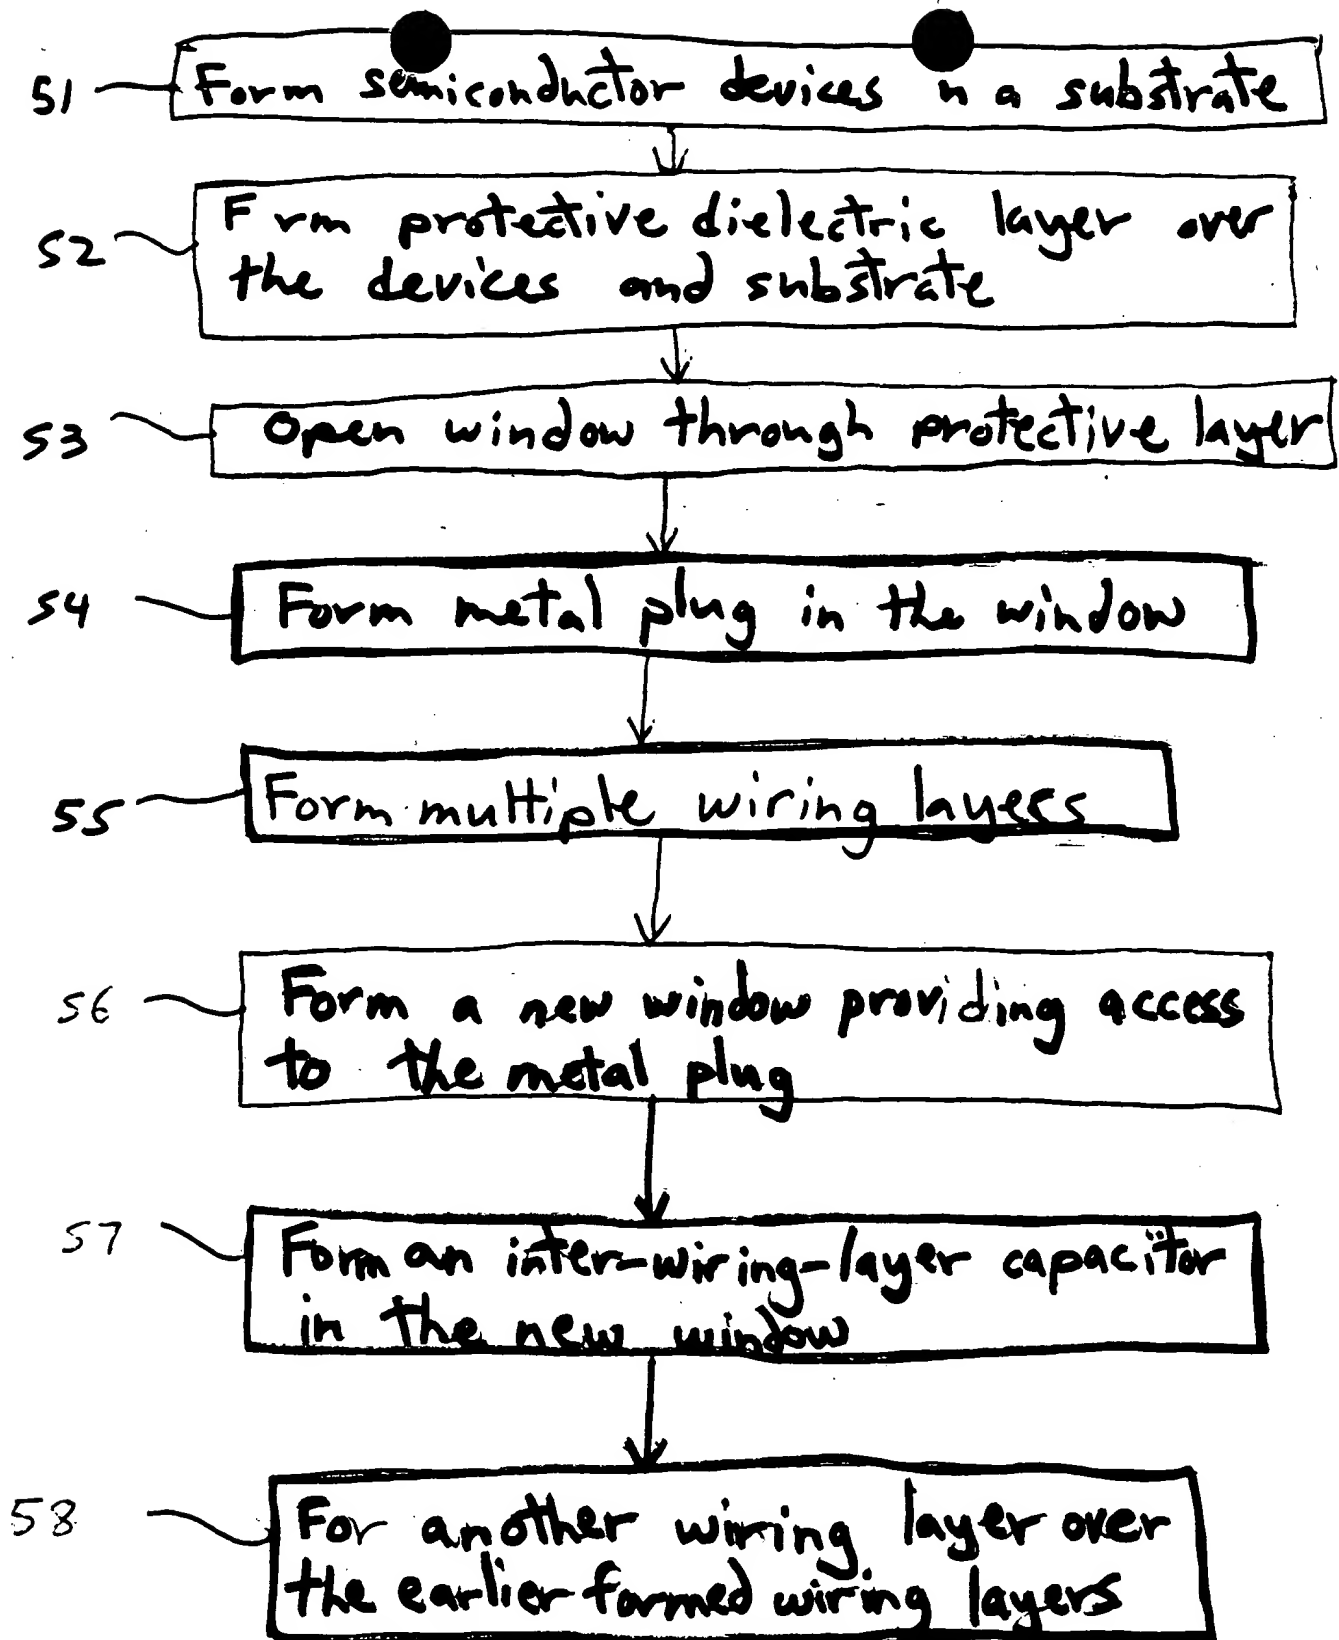 51 Form semiconductor devices n a substrate
52 F rm protective dielectric layer over
the devices and substrate
53 Open window through protective layer
54 Form metal plug in the window
55 Form multiple wiring layers
56 Form a new window providing access
to the metal plug
57 Form an inter-wiring-layer capacitor
in the new window
58 For another wiring layer over
the earlier formed wiring layers